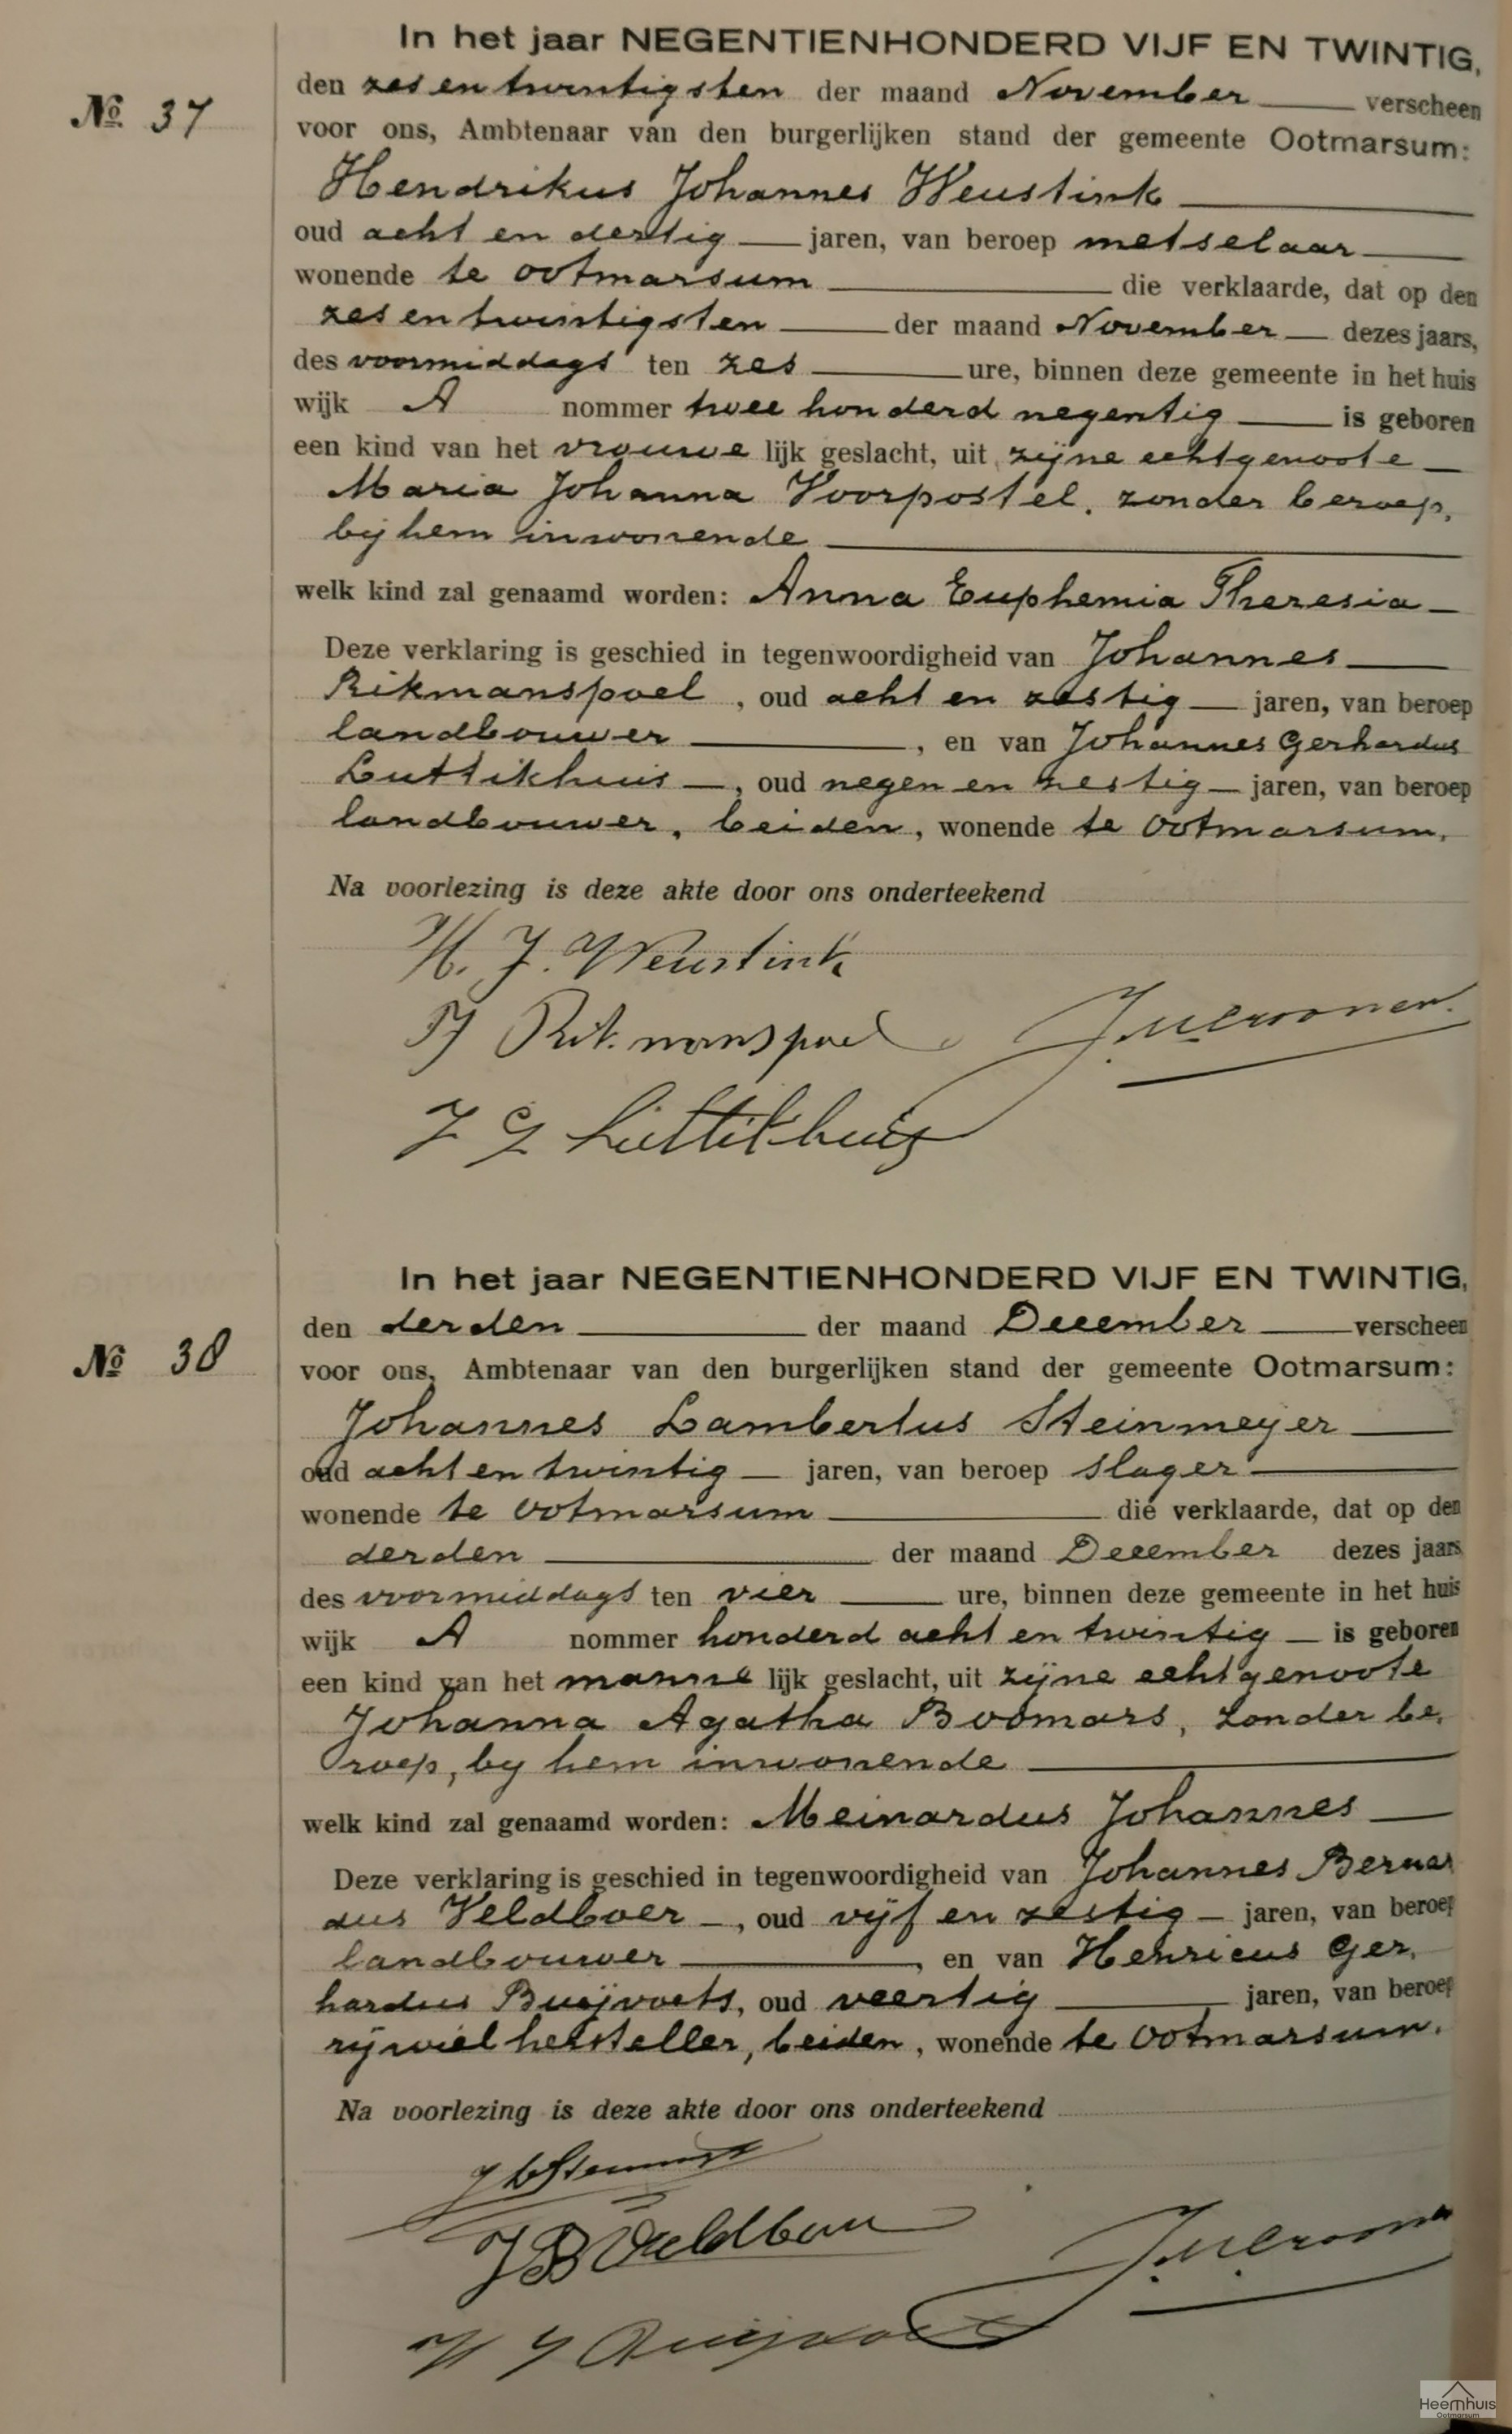 In het jaar NEGENTIENHONDERD VIJF EN TWINTIG,
den zes en twintigsten der maand November verscheen
No 37
voor ons, Ambtenaar van den burgerlijken stand der gemeente Ootmarsum:
Hendrikus Johannes Weustink
oud acht en dertig jaren, van beroep metselaar
wonende te Ootmarsum die verklaarde, dat op den
zes en twintigsten der maand November dezes jaars,
des voormiddags ten zes ure, binnen deze gemeente in het huis
wijk A nommer twee honderd negentig is geboren
een kind van het vrouwe lijk geslacht, uit zijne echtgenoote
Maria Johanna Voorpostel, zonder beroep,
bij hem inwonende
welk kind zal genaamd worden: Anna Euphemia Theresia
Deze verklaring is geschied in tegenwoordigheid van Johannes
Rikmanspoel, oud acht en zestig jaren, van beroep
landbouwer, en van Johannes Gerhardus
Luttikhuis, oud negen en zestig jaren, van beroep
landbouwer, beiden, wonende te Ootmarsum.
Na voorlezing is deze akte door ons onderteekend
H. J. Weustink
J Rikmanspoel
J G Luttikhuis
In het jaar NEGENTIENHONDERD VIJF EN TWINTIG,
den derden der maand December verscheen
No 38
voor ons, Ambtenaar van den burgerlijken stand der gemeente Ootmarsum:
Johannes Lambertus Steinmeyer
oud acht en twintig jaren, van beroep slager
wonende te Ootmarsum die verklaarde, dat op den
derden der maand December dezes jaars
des voormiddags ten vier ure, binnen deze gemeente in het huis
wijk A nommer honderd acht en twintig is geboren
een kind van het manne lijk geslacht, uit zijne echtgenoote
Johanna Agatha Boomars, zonder be,
roep, by hem inwonende
welk kind zal genaamd worden: Meinardus Johannes
Deze verklaring is geschied in tegenwoordigheid van Johannes Bernar
dus Veldboer, oud vijf en zestig jaren, van beroep
landbouwer, en van Henricus Ger,
hardus Buijvoets, oud veertig jaren, van beroep
rijwielhersteller, beiden, wonende te Ootmarsum.
Na voorlezing is deze akte door ons onderteekend
J B Veldboer
Heemhuis
Ootmarsum